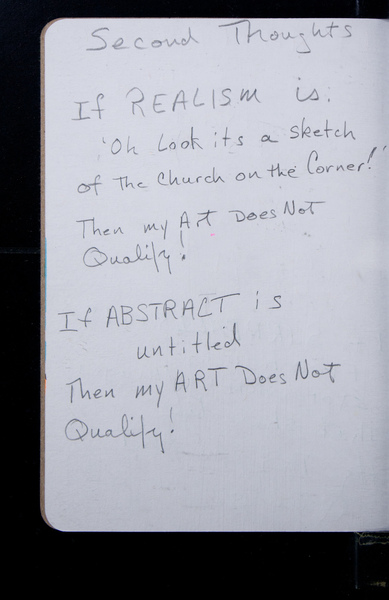 Second Thoughts
If REALISM is:
'Oh Look its a Sketch
of The Church on the Corner!'
Then my Art Does Not
Qualify!
If ABSTRACT is
untitled
Then my ART Does Not
Qualify!